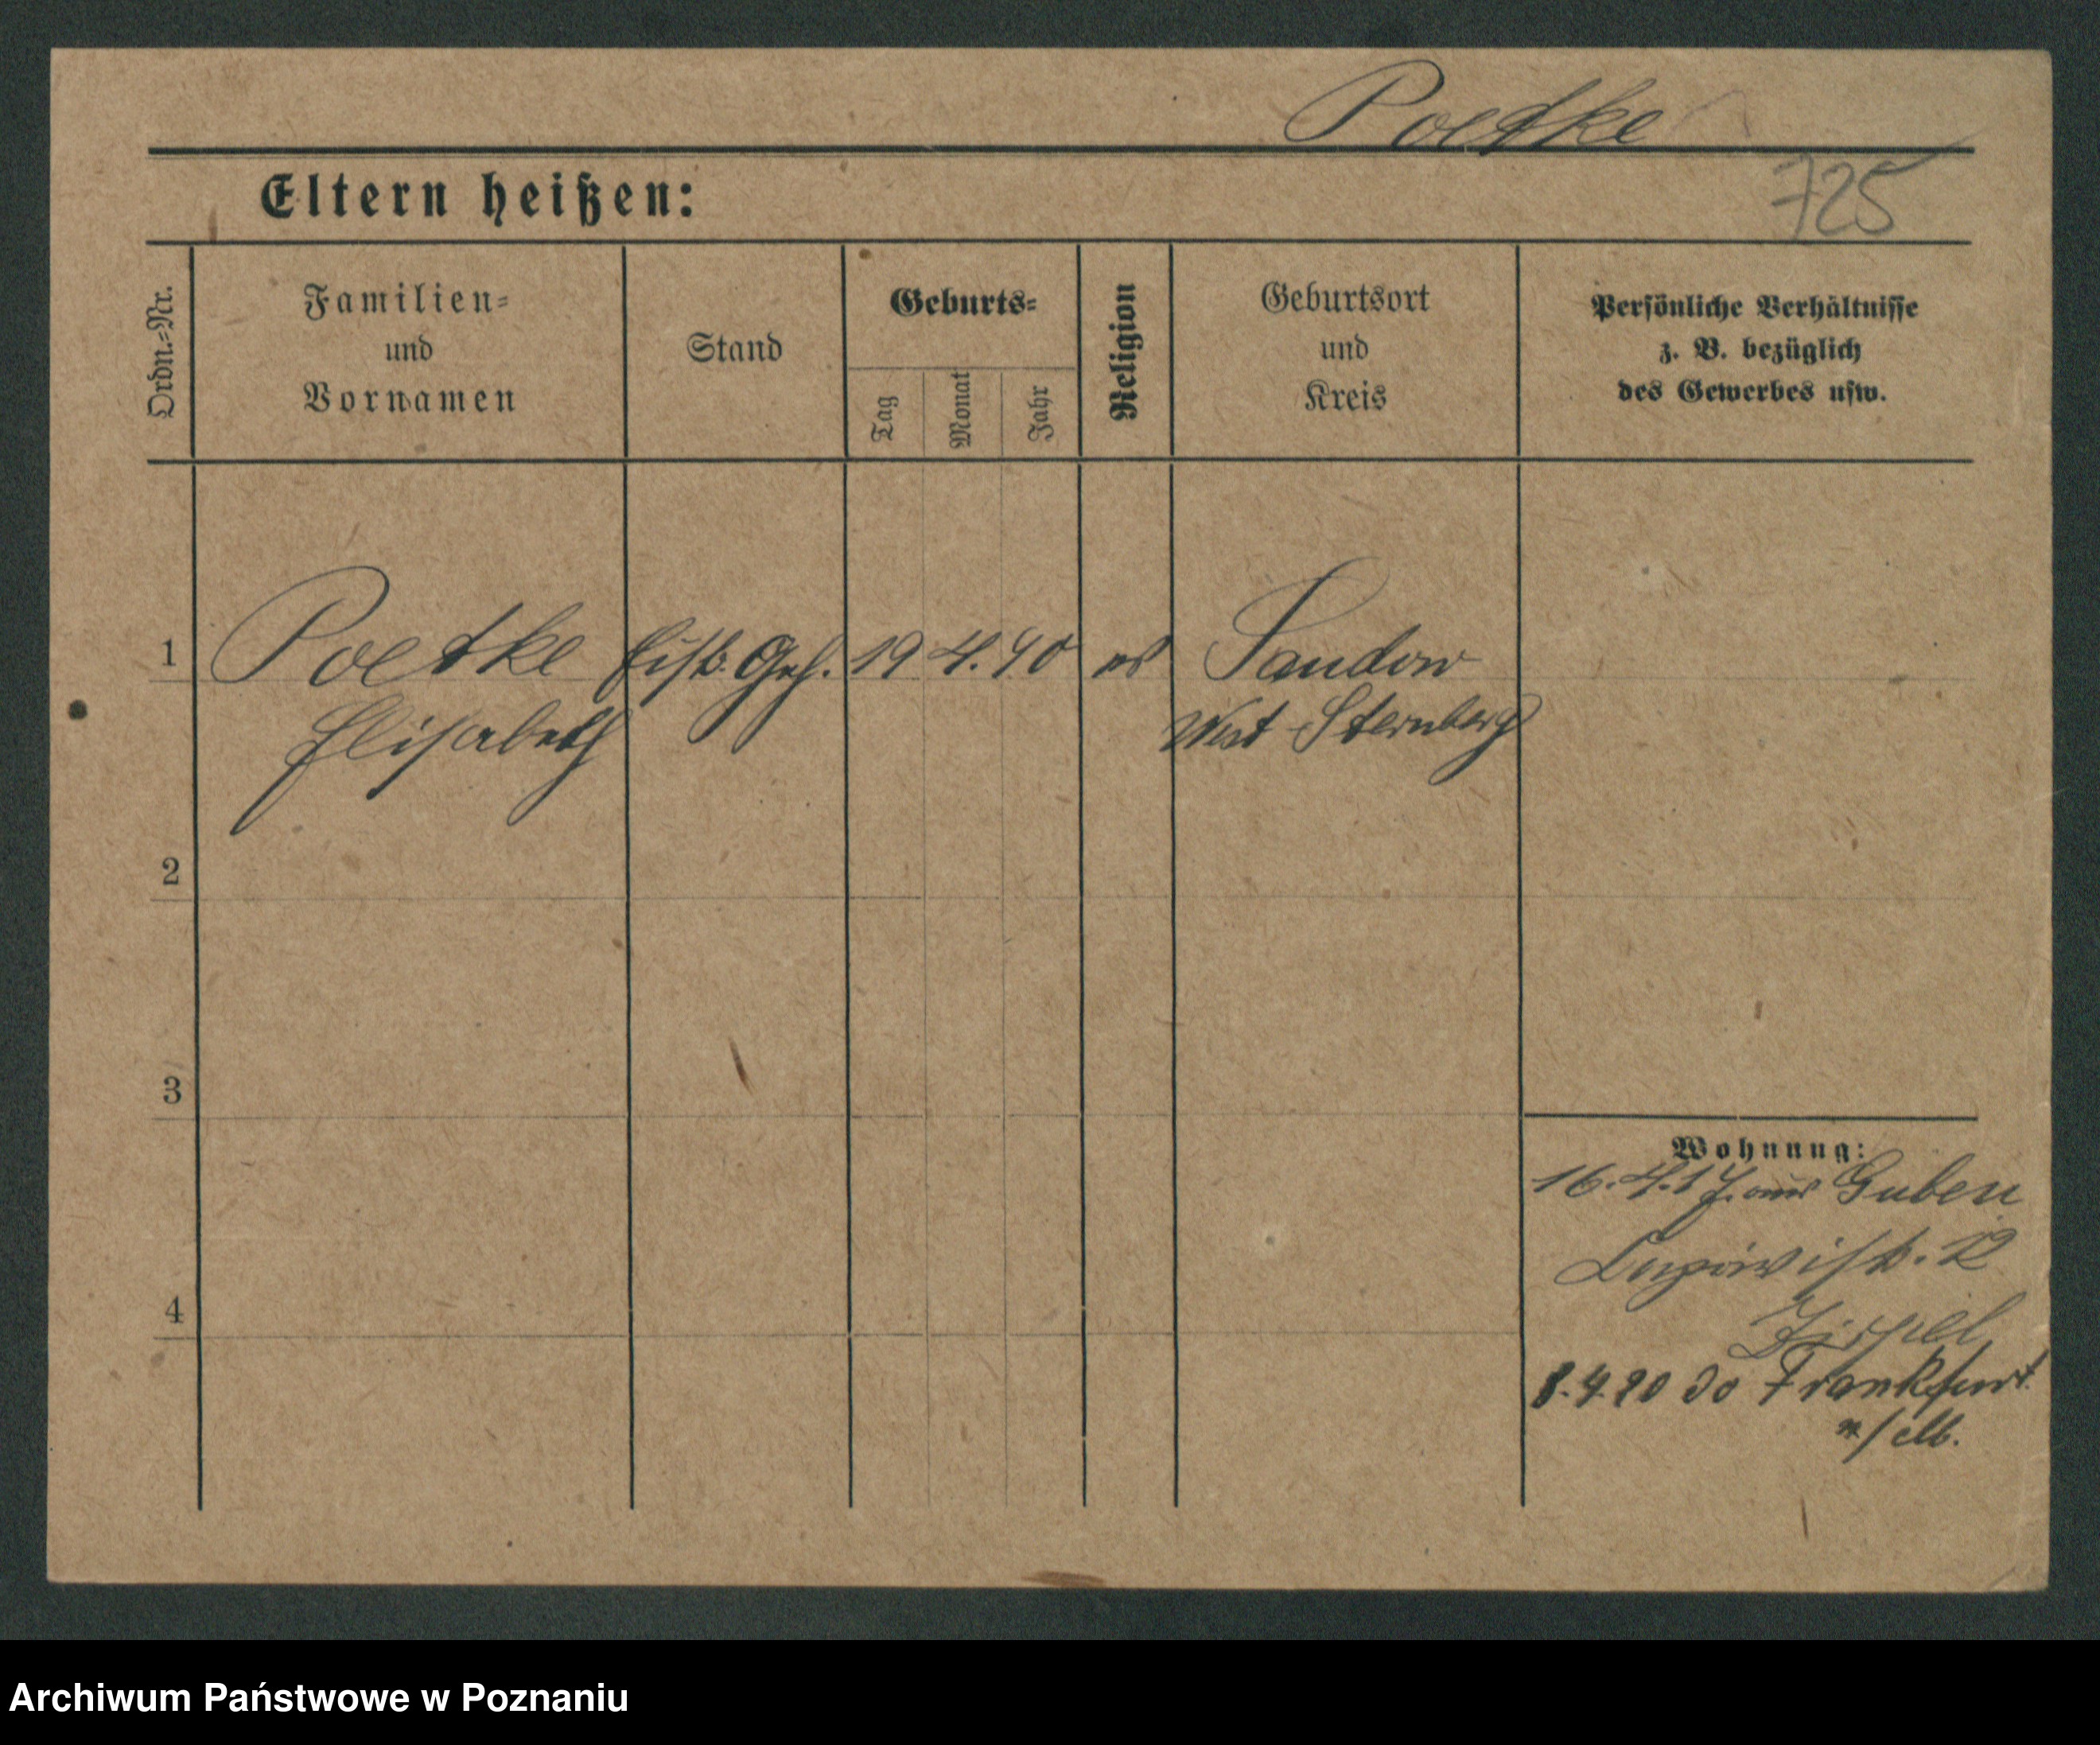 Poetke
725
Eltern heißen:
Ordn.-Nr.
Familien-
und
Vornamen
Stand
Geburts-
Tag
Monat
Jahr
Religion
Geburtsort
und
Kreis
Persönliche Verhältnisse
z. B. bezüglich
des Gewerbes usw.
1 Poetke 19 4. 90 ev Sandow
Elisabeth West Sternberg
2
3
4
Wohnung:
16. 4. 17. aus Guben
8. 4. 20 Frankfurt
Archiwum Państwowe w Poznaniu